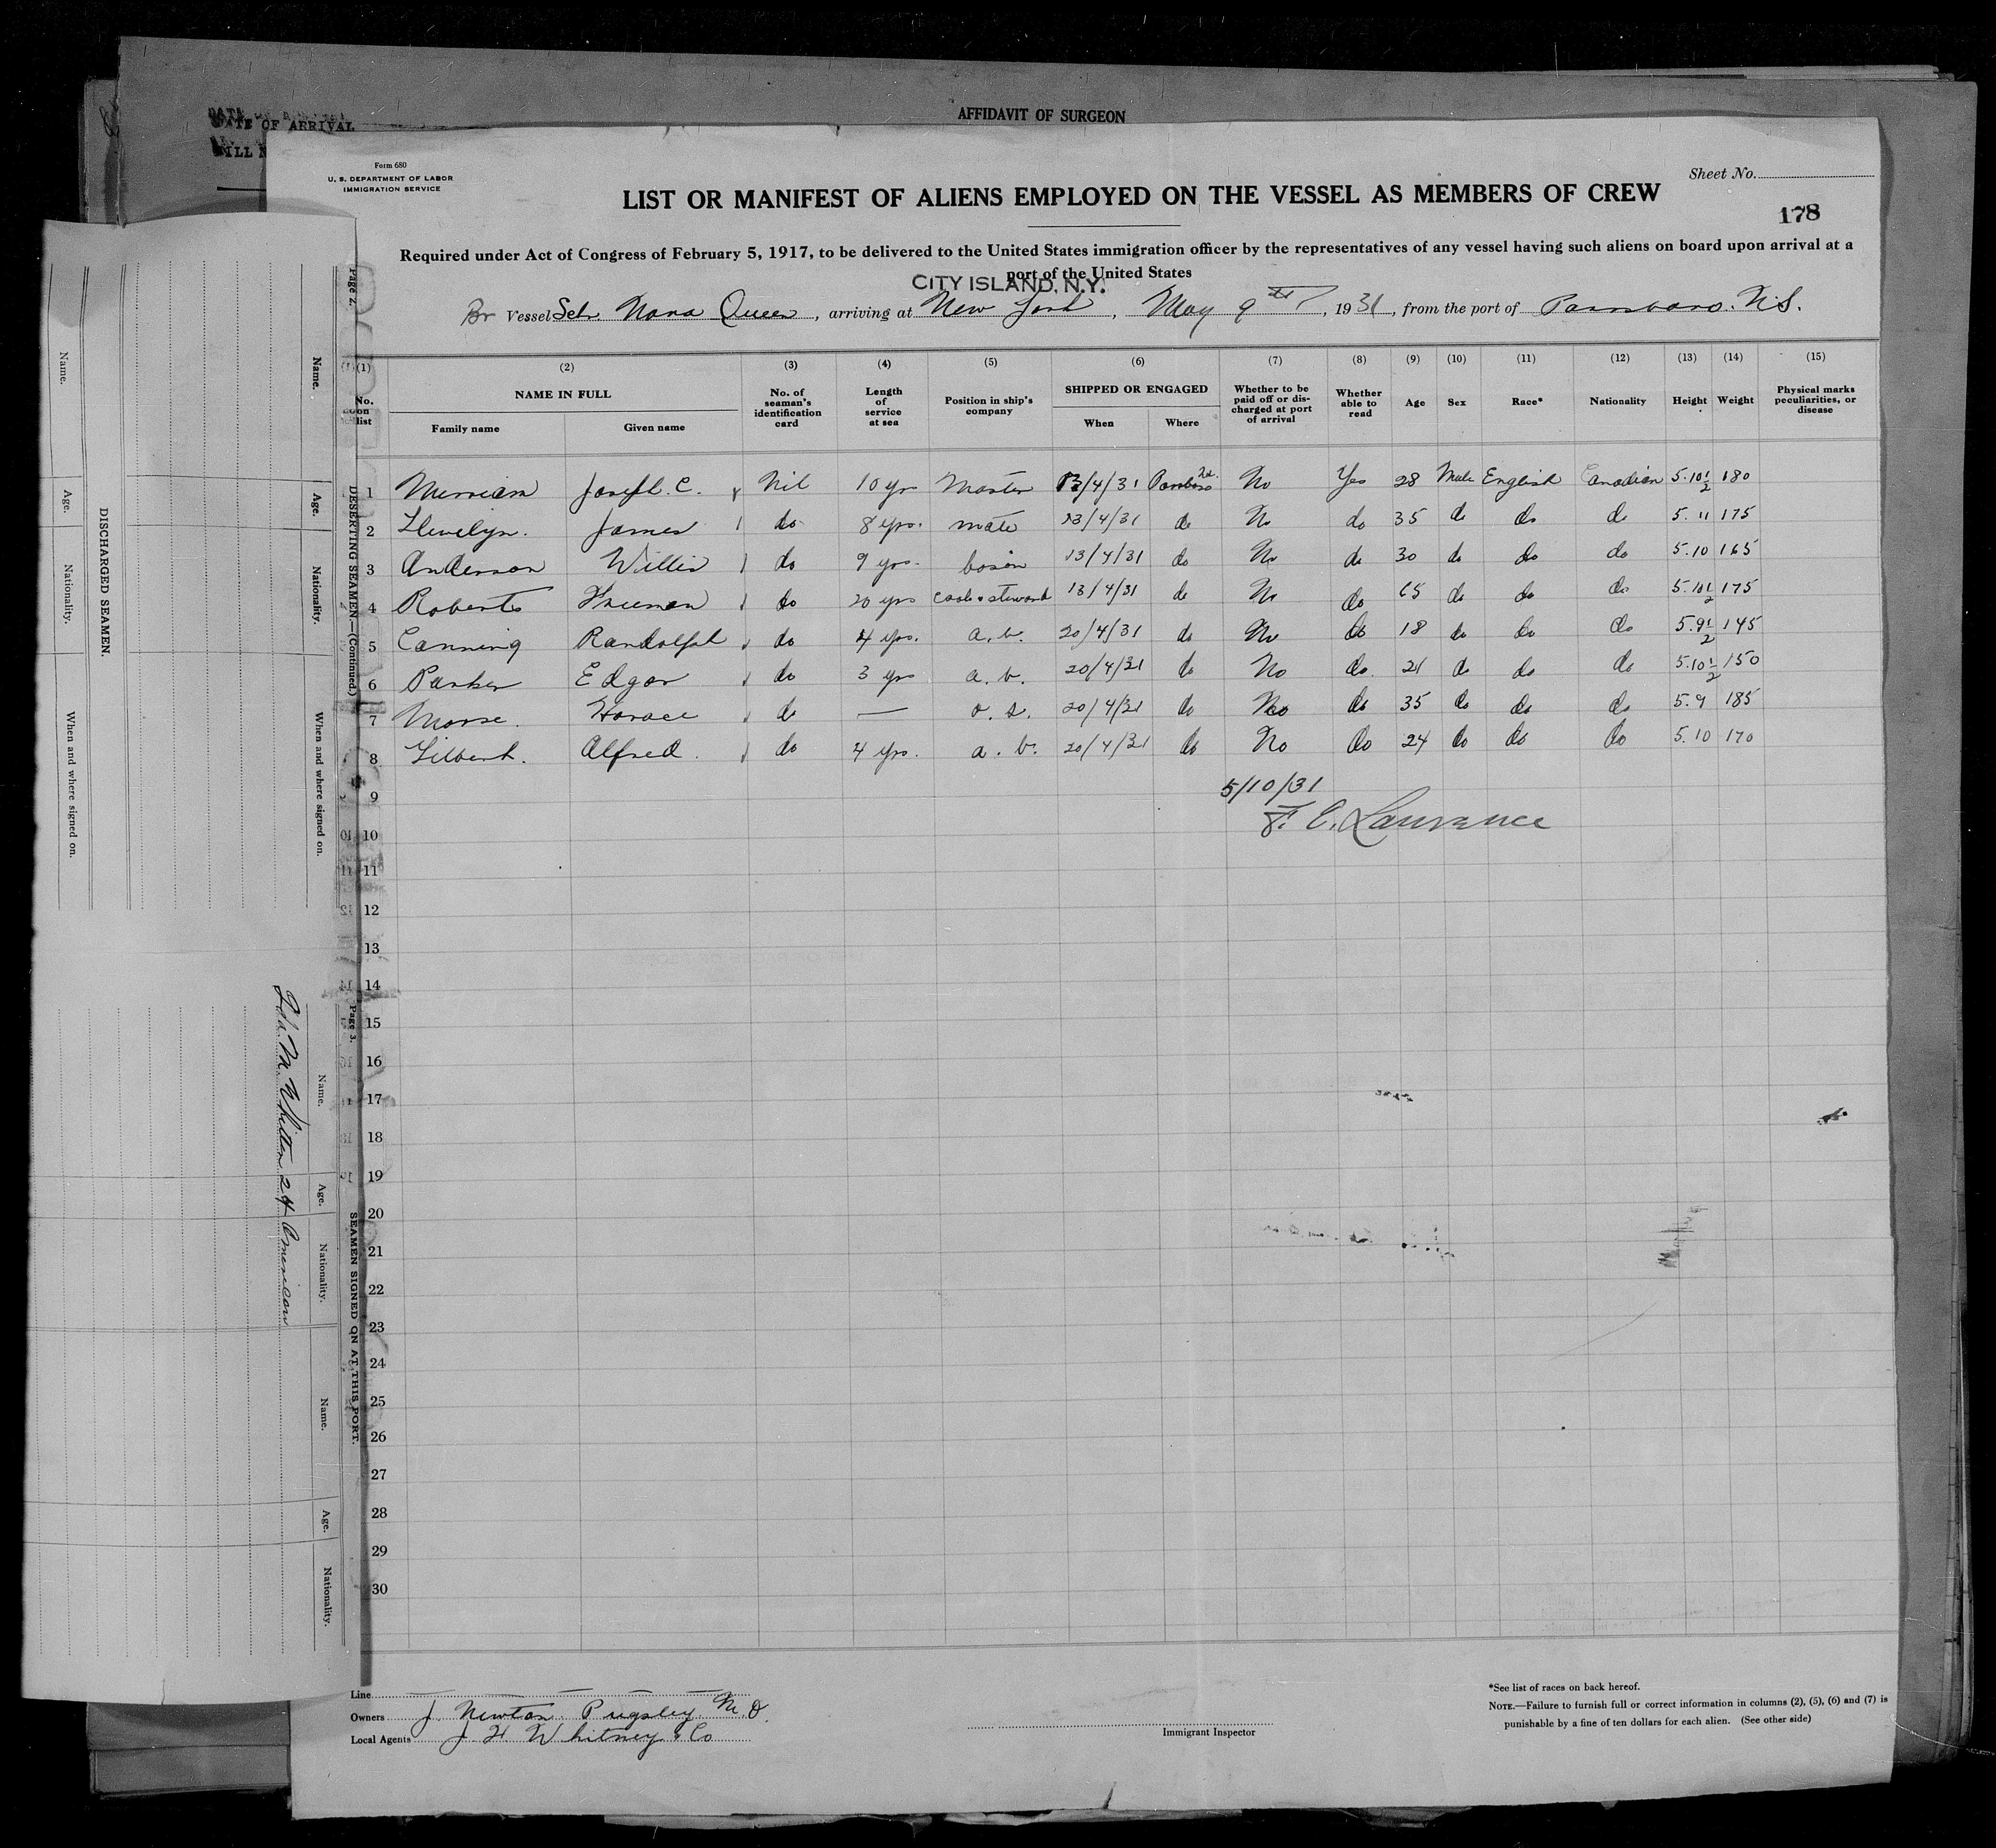 DATE OF ARRIVAL
AFFIDAVIT OF SURGEON
Form 680
U. S. DEPARTMENT OF LABOR
IMMIGRATION SERVICE
Sheet No.
LIST OR MANIFEST OF ALIENS EMPLOYED ON THE VESSEL AS MEMBERS OF CREW
178
Required under Act of Congress of February 5, 1917, to be delivered to the United States immigration officer by the representatives of any vessel having such aliens on board upon arrival at a
port of the United States
CITY ISLAND, N.Y.
Br Vessel Schr. Nova Queen, arriving at New York, May 9th, 1931, from the port of Parrsboro. N.S.
(1) (2) (3) (4) (5) (6) (7) (8) (9) (10) (11) (12) (13) (14) (15)
No. on list NAME IN FULL Family name Given name No. of seaman's identification card Length of service at sea Position in ship's company SHIPPED OR ENGAGED When Where Whether to be paid off or discharged at port of arrival Whether able to read Age Sex Race* Nationality Height Weight Physical marks peculiarities, or disease
1 Merriam Joseph. C. Nil 10 yrs Master 13/4/31 Parrsboro N.S. No Yes 28 Male English Canadian 5.10 1/2 180
2 Llewelyn. James do 8 yrs. mate 13/4/31 do No do 35 do do do 5.11 175
3 Anderson Willis do 9 yrs. bosin 13/4/31 do No do 30 do do do 5.10 165
4 Roberts Freeman do 20 yrs cook & steward 13/4/31 do No do 65 do do do 5.10 1/2 175
5 Canning Randolph do 4 yrs. a.b. 20/4/31 do No do 18 do do do 5.9 1/2 145
6 Parker Edgar do 3 yrs a.b. 20/4/31 do No do. 21 do do do 5.10 1/2 150
7 Morse. Horace do — o.s. 20/4/31 do No do 35 do do do 5.9 185
8 Gilbert. Alfred. do 4 yrs. a.b. 20/4/31 do No do 24 do do do 5.10 170
9 5/10/31
10 F. C. Lawrence
11
12
13
14
15
16
17
18
19
20
21
22
23
24
25
26
27
28
29
30
Line
Owners J. Newton Pugsley M.O.
Local Agents J. H. Whitney & Co
Immigrant Inspector
*See list of races on back hereof.
NOTE.—Failure to furnish full or correct information in columns (2), (5), (6) and (7) is
punishable by a fine of ten dollars for each alien. (See other side)
Page 2.
DESERTING SEAMEN.—(Continued.)
Name. Age. Nationality. When and where signed on.
DISCHARGED SEAMEN.
Name. Age. Nationality. When and where signed on.
Page 3.
SEAMEN SIGNED ON AT THIS PORT.
Name. Age. Nationality. Name. Age. Nationality.
M. Whitten 24 American